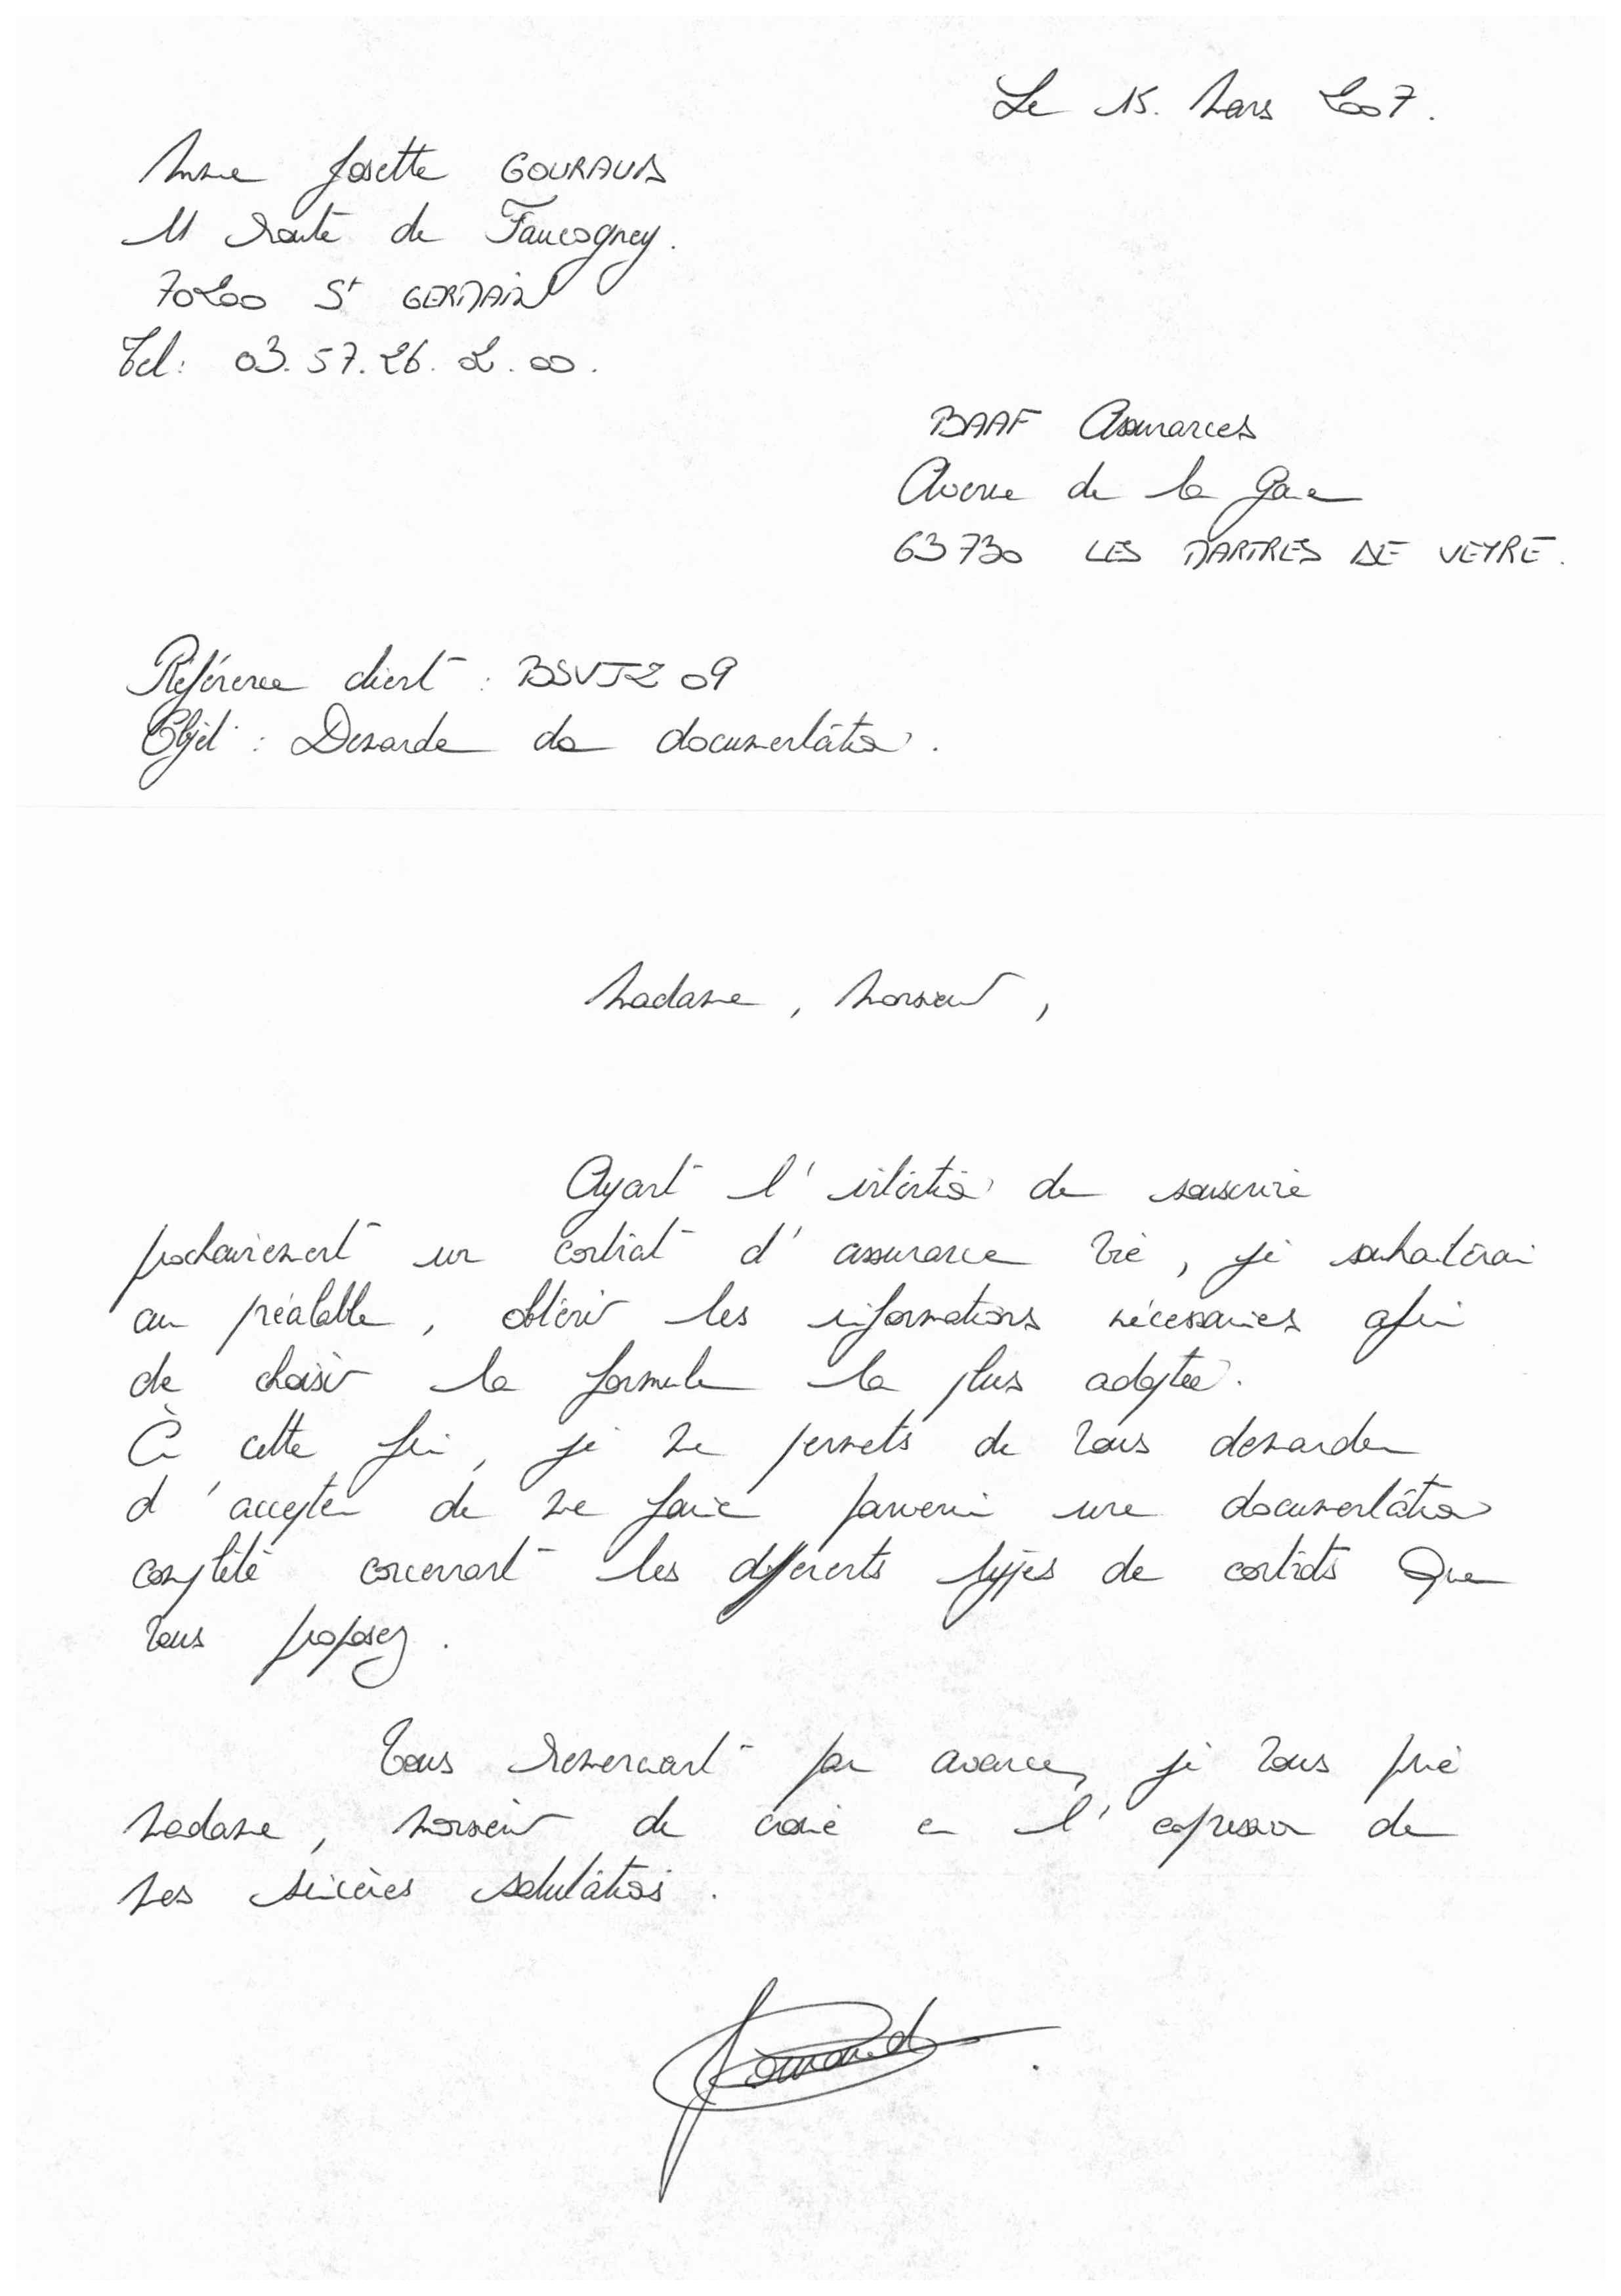 Le 15. Mars 2007.
Mme Josette GOURAUD
11 Route de Faucogney.
70200 St GERMAIN
Tel: 03.57.26.02.00.
BAAF Assurances
Avenue de la Gare
63730 LES MARTRES DE VEYRE.
Référence client : BSVTZ 09
Objet : Demande de documentation.
Madame, Monsieur,
Ayant l'intention de souscrire
prochainement un contrat d'assurance vie, je souhaiterai
au préalable, obtenir les informations nécessaires afin
de choisir la formule la plus adaptée.
À cette fin, je me permets de vous demander
d'accepter de me faire parvenir une documentation
complète concernant les différents types de contrats que
vous proposez.
Vous remerciant par avance, je vous prie
Madame, Monsieur de croire en l'expression de
mes sincères salutations.
Gouraud